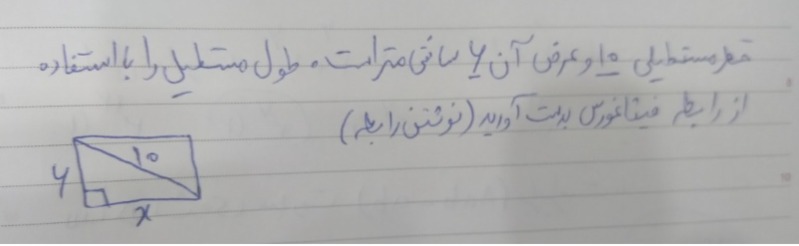 قطر مستطیلی ۱۰ و عرض آن ۶ سانتی متر است. طول مستطیل را با استفاده
از رابطه فیثاغورس بدست آورید (نوشتن رابطه)
۱۰
۶
x